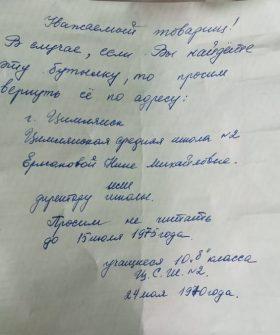 Уважаемый товарищ!
В случае, если Вы найдёте
эту бутылку, то просим
вернуть её по адресу:
г. Цимлянск
Цимлянская средняя школа №2
Ермаковой Нине Михайловне.
или
директору школы.
Просим не читать
до 15 июля 1975 года.
учащиеся 10 "б" класса
Ц.С.Ш. №2.
24 мая 1970 года.